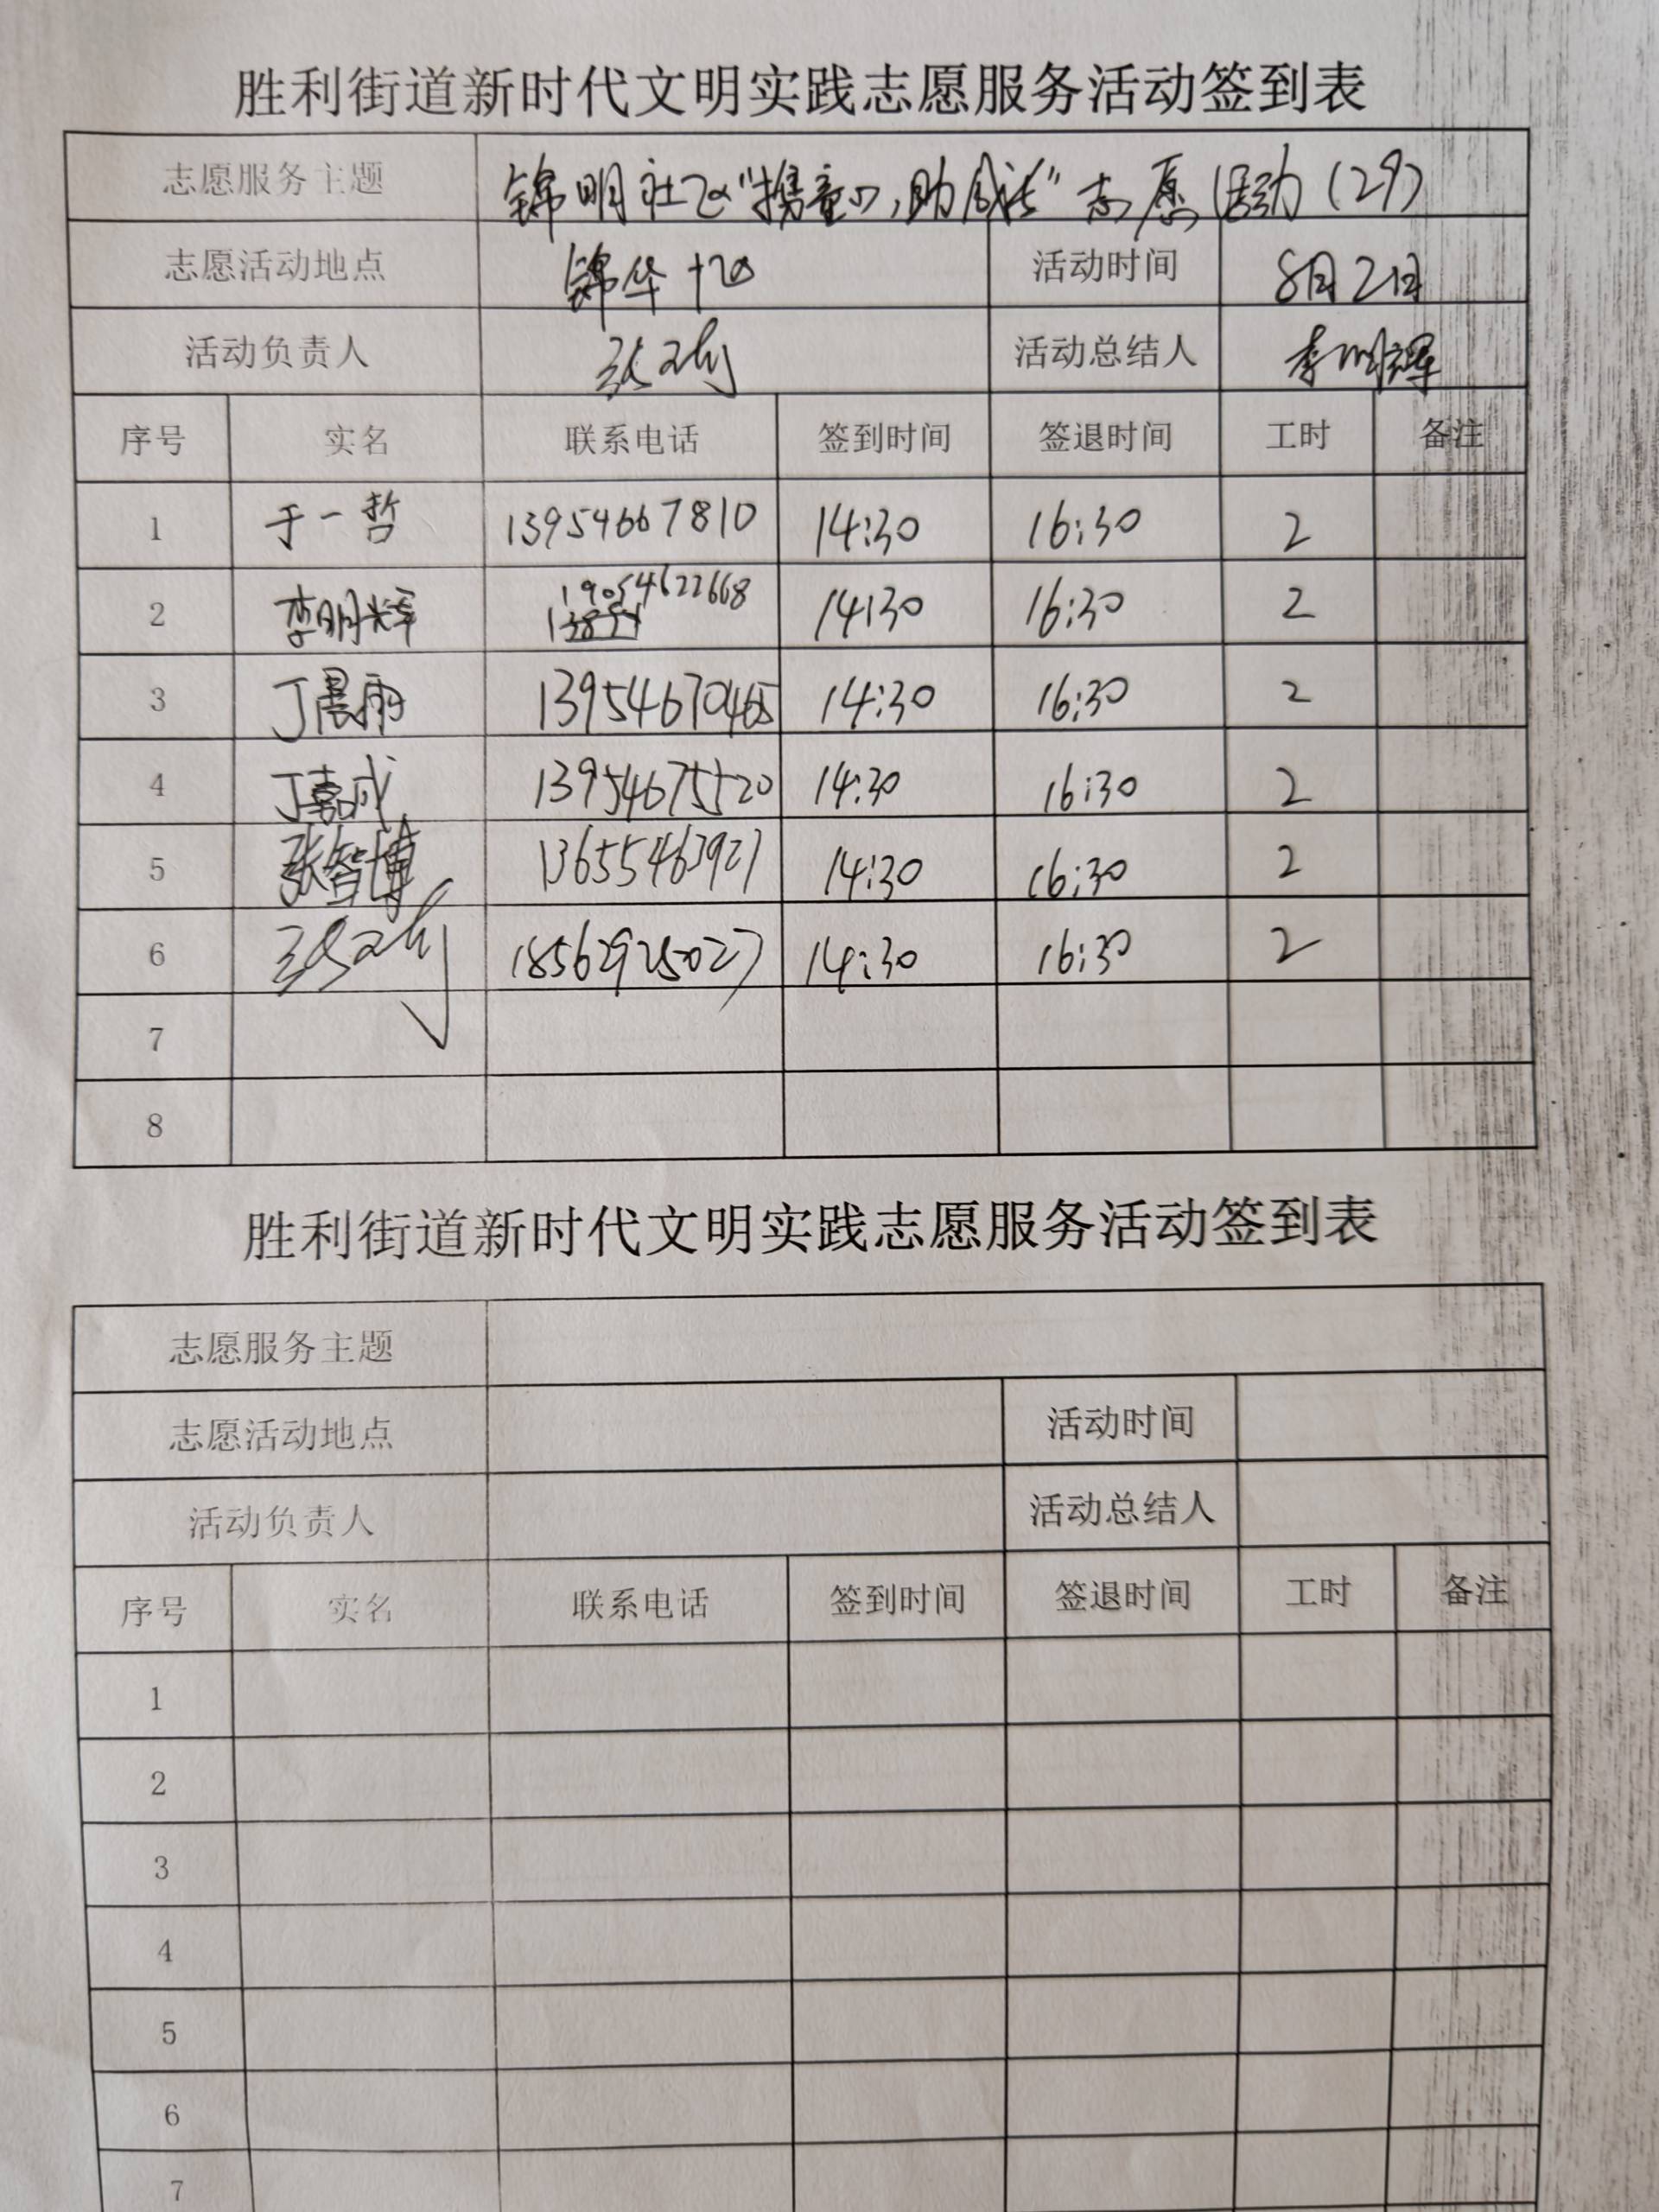 胜利街道新时代文明实践志愿服务活动签到表
志愿服务主题 锦明社区"携童心,助成长"志愿活动(29)
志愿活动地点 锦华十区 活动时间 8月2日
活动负责人 活动总结人 李明辉
序号 实名 联系电话 签到时间 签退时间 工时 备注
1 于一哲 13954667810 14:30 16:30 2
2 李明辉 19054622668 14:30 16:30 2
3 丁晨雨 13954670465 14:30 16:30 2
4 丁嘉成 13954675520 14:30 16:30 2
5 张智博 13655463921 14:30 16:30 2
6 18562925027 14:30 16:30 2
7
8
胜利街道新时代文明实践志愿服务活动签到表
志愿服务主题
志愿活动地点 活动时间
活动负责人 活动总结人
序号 实名 联系电话 签到时间 签退时间 工时 备注
1
2
3
4
5
6
7